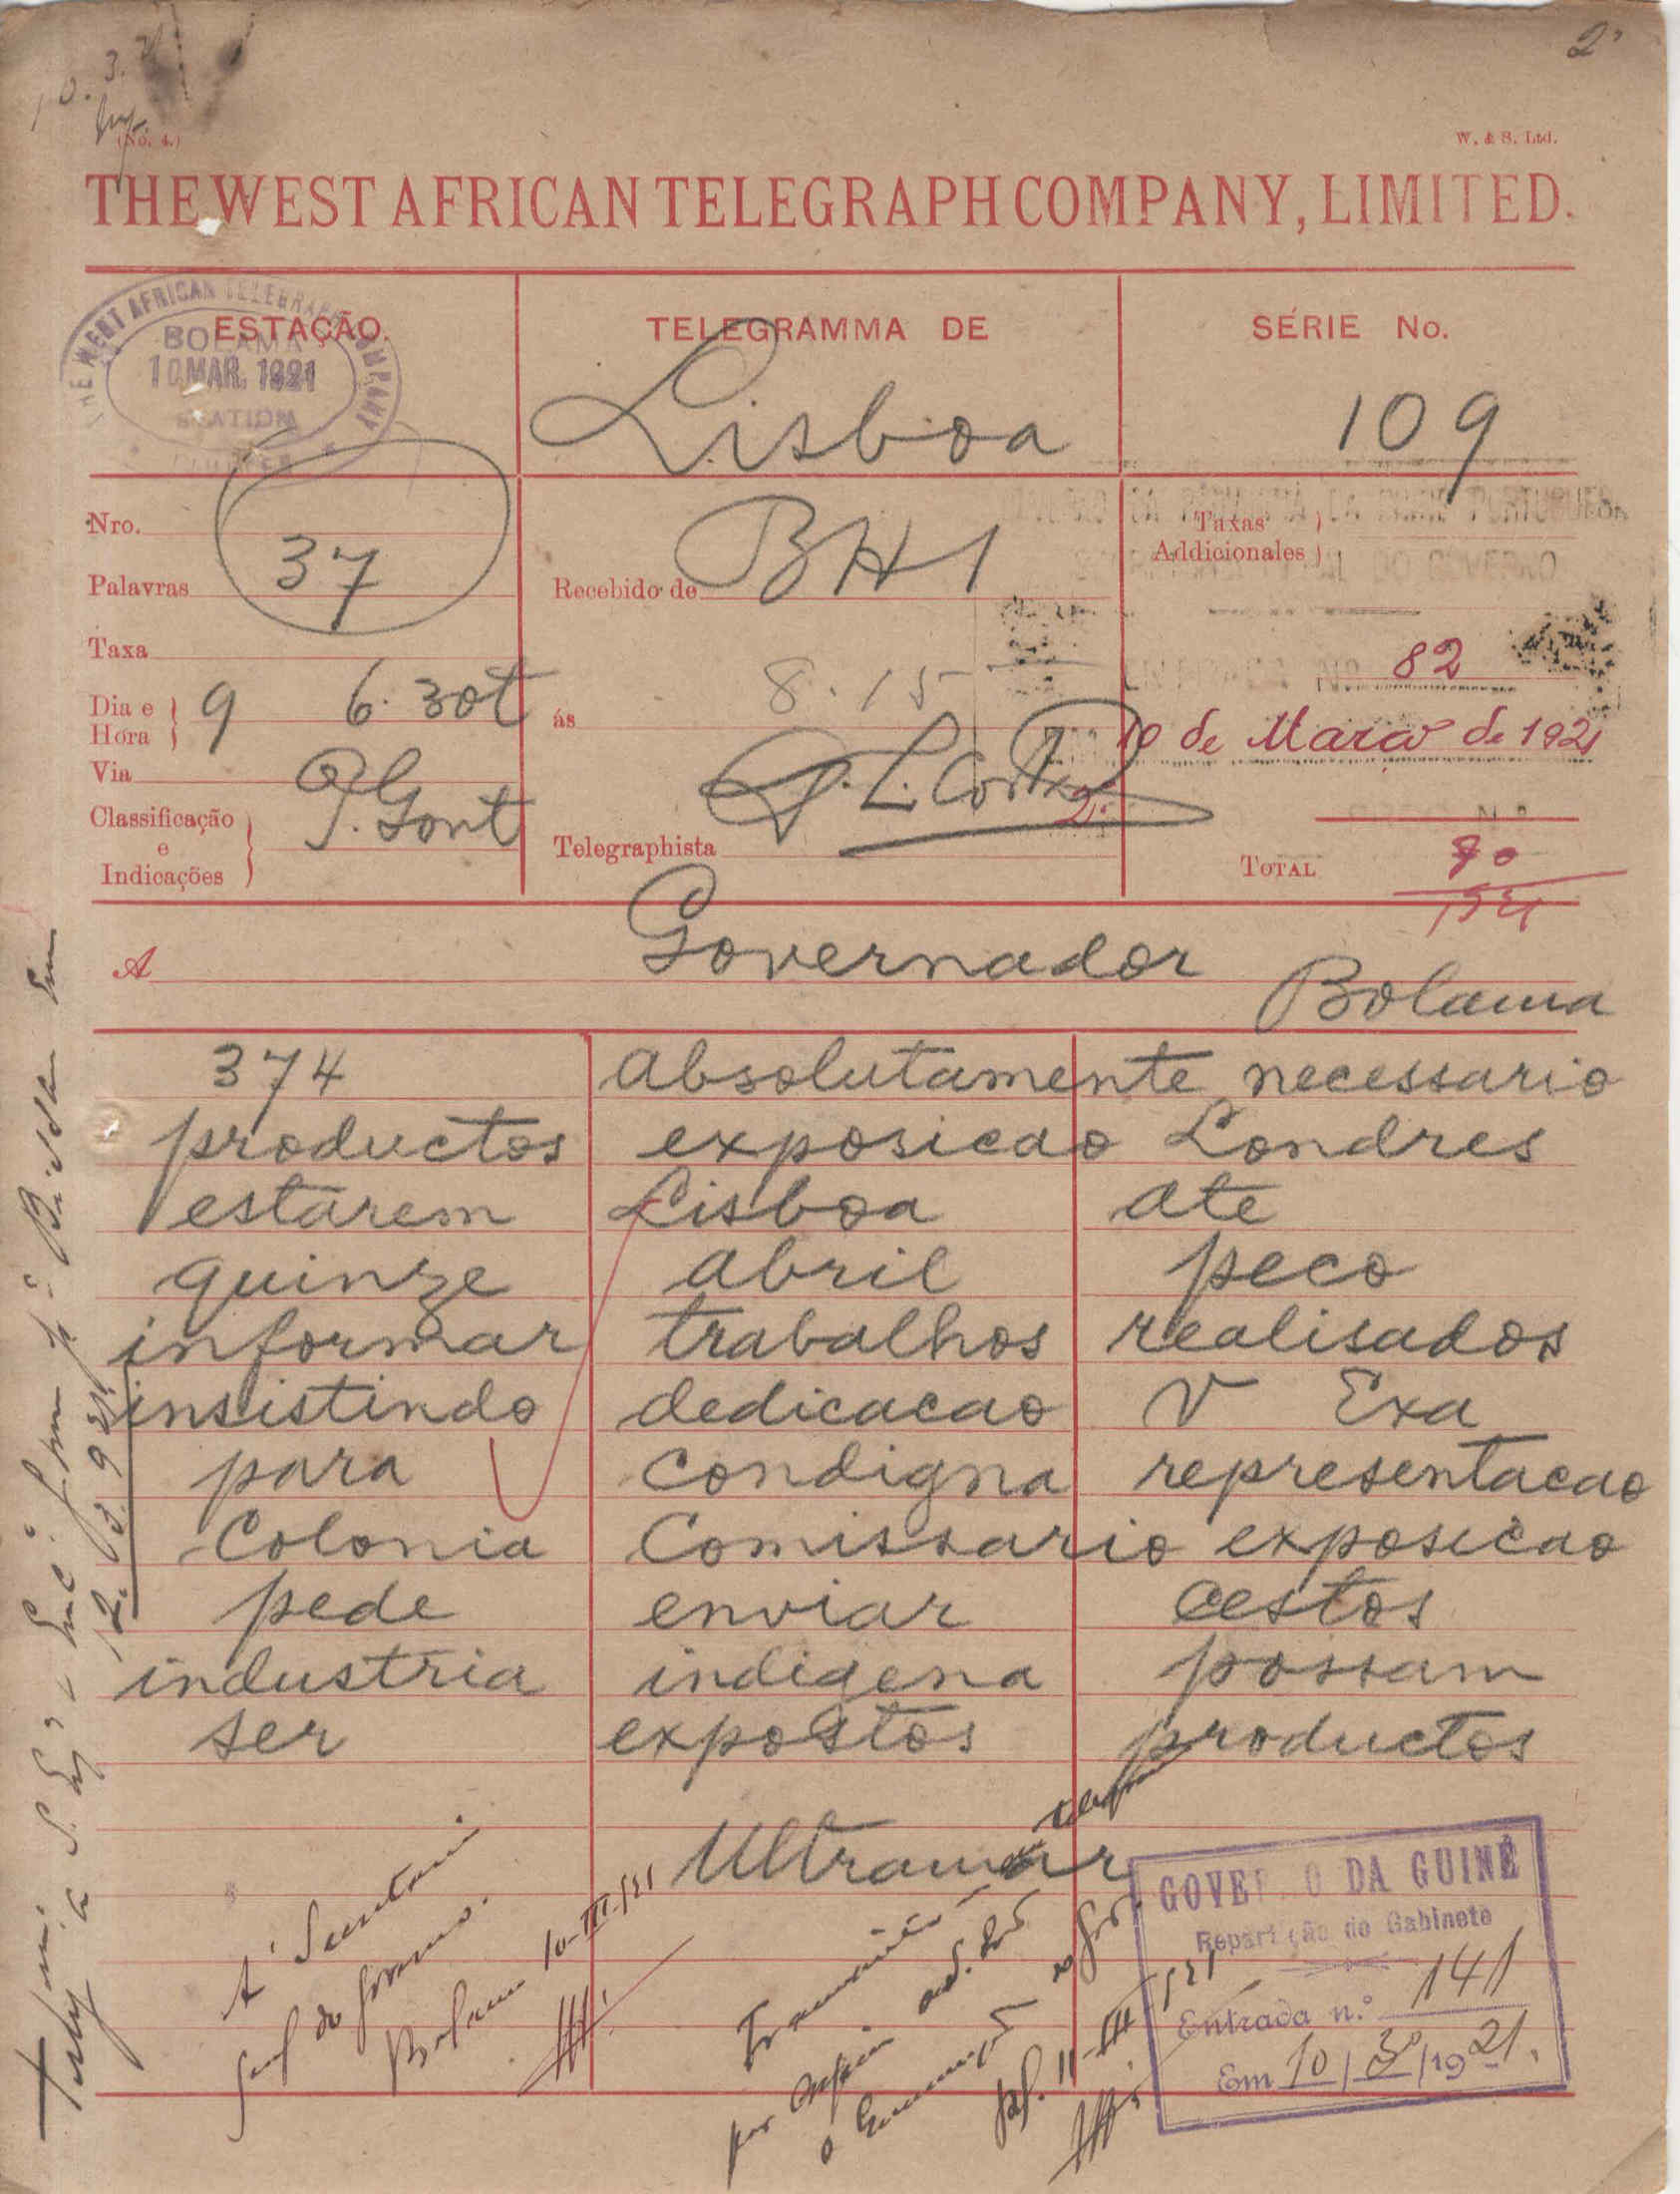 2º
10.3.21
(No. 4.)
W. & S. Ltd.
THE WEST AFRICAN TELEGRAPH COMPANY, LIMITED.
ESTAÇÃO.
THE WEST AFRICAN TELEGRAPH COMPANY
BOLAMA
10 MAR. 1921
STATION
TELEGRAMMA DE
Lisboa
SÉRIE No.
109
Nro.
Palavras 37
Taxa
Dia e Hora } 9 6.30t
Via
Classificação e Indicações } P. Gont
Recebido de BH1
ás 8.15
Telegraphista
Taxas Addicionales }
DO GOVERNO
Nº 82
10 de Março de 1921
2º
N.º
TOTAL
1921
A Governador
Bolama
374 Absolutamente necessario
productos exposicao Londres
estarem Lisboa ate
quinze abril peco
informar trabalhos realisados
insistindo dedicacao V Exa
para condigna representacao
Colonia Comissario exposicao
pede enviar cestos
industria indigena possam
ser expostos productos
Ultramar
A' Secretaria
Geral do Governo.
Bolama 10-III-921
11-III-921
GOVERNO DA GUINÉ
Repartição do Gabinete
Entrada n.º 141
Em 10/3º/1921.
12.3.921